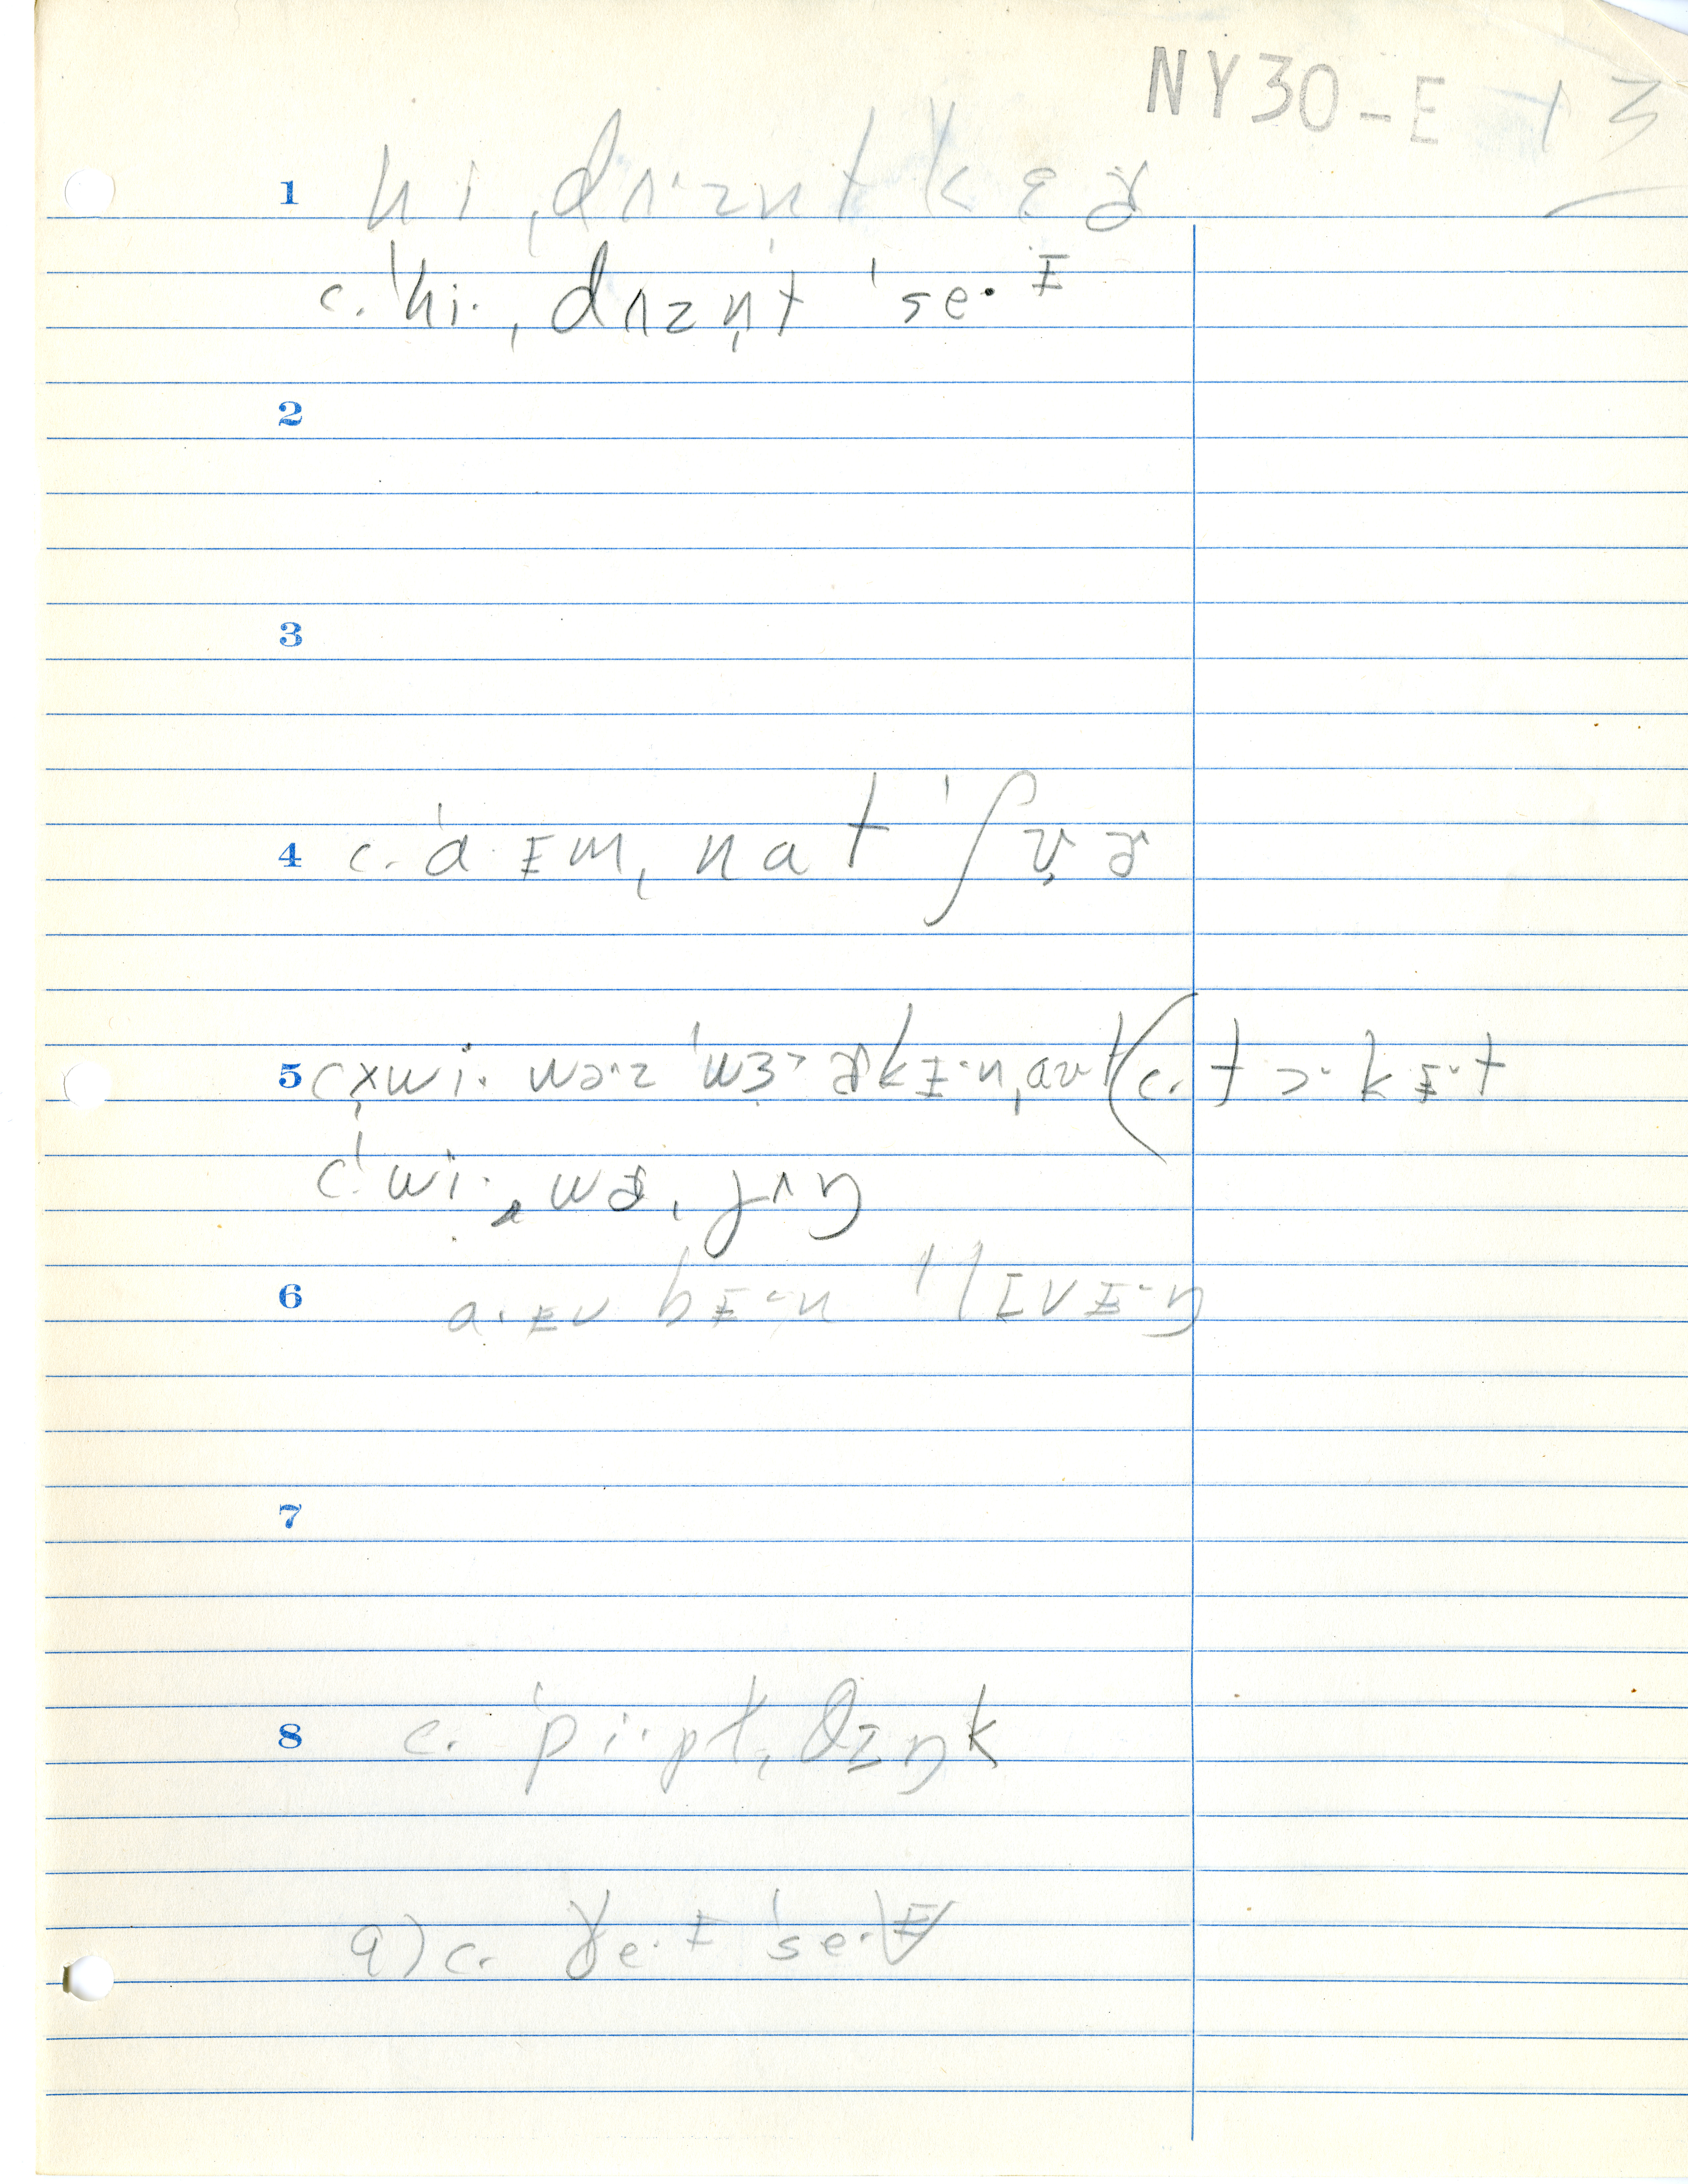 NY30-E 13
1 hi ˌdʌ·zn̩t kɛɚ
c. ˈhi· ˌdʌzn̩t ˈse·ɪ
2
3
4 c. ˈa·ɪm ˌnat ˈʃʊ̬ɚ
5 c. wi· wɔ·z ˈwɜ˞kɪ·n ˌaut (c. tɔ·kɪ·t
c. ˈwi· wɚ ˌjʌŋ
6 a·ɪv bɪ·n ˈlɪvɪ·ŋ
7
8 c. ˈpi·pl̩ ˌθɪŋk
9) c. ðe·ɪ ˈse·ɪ